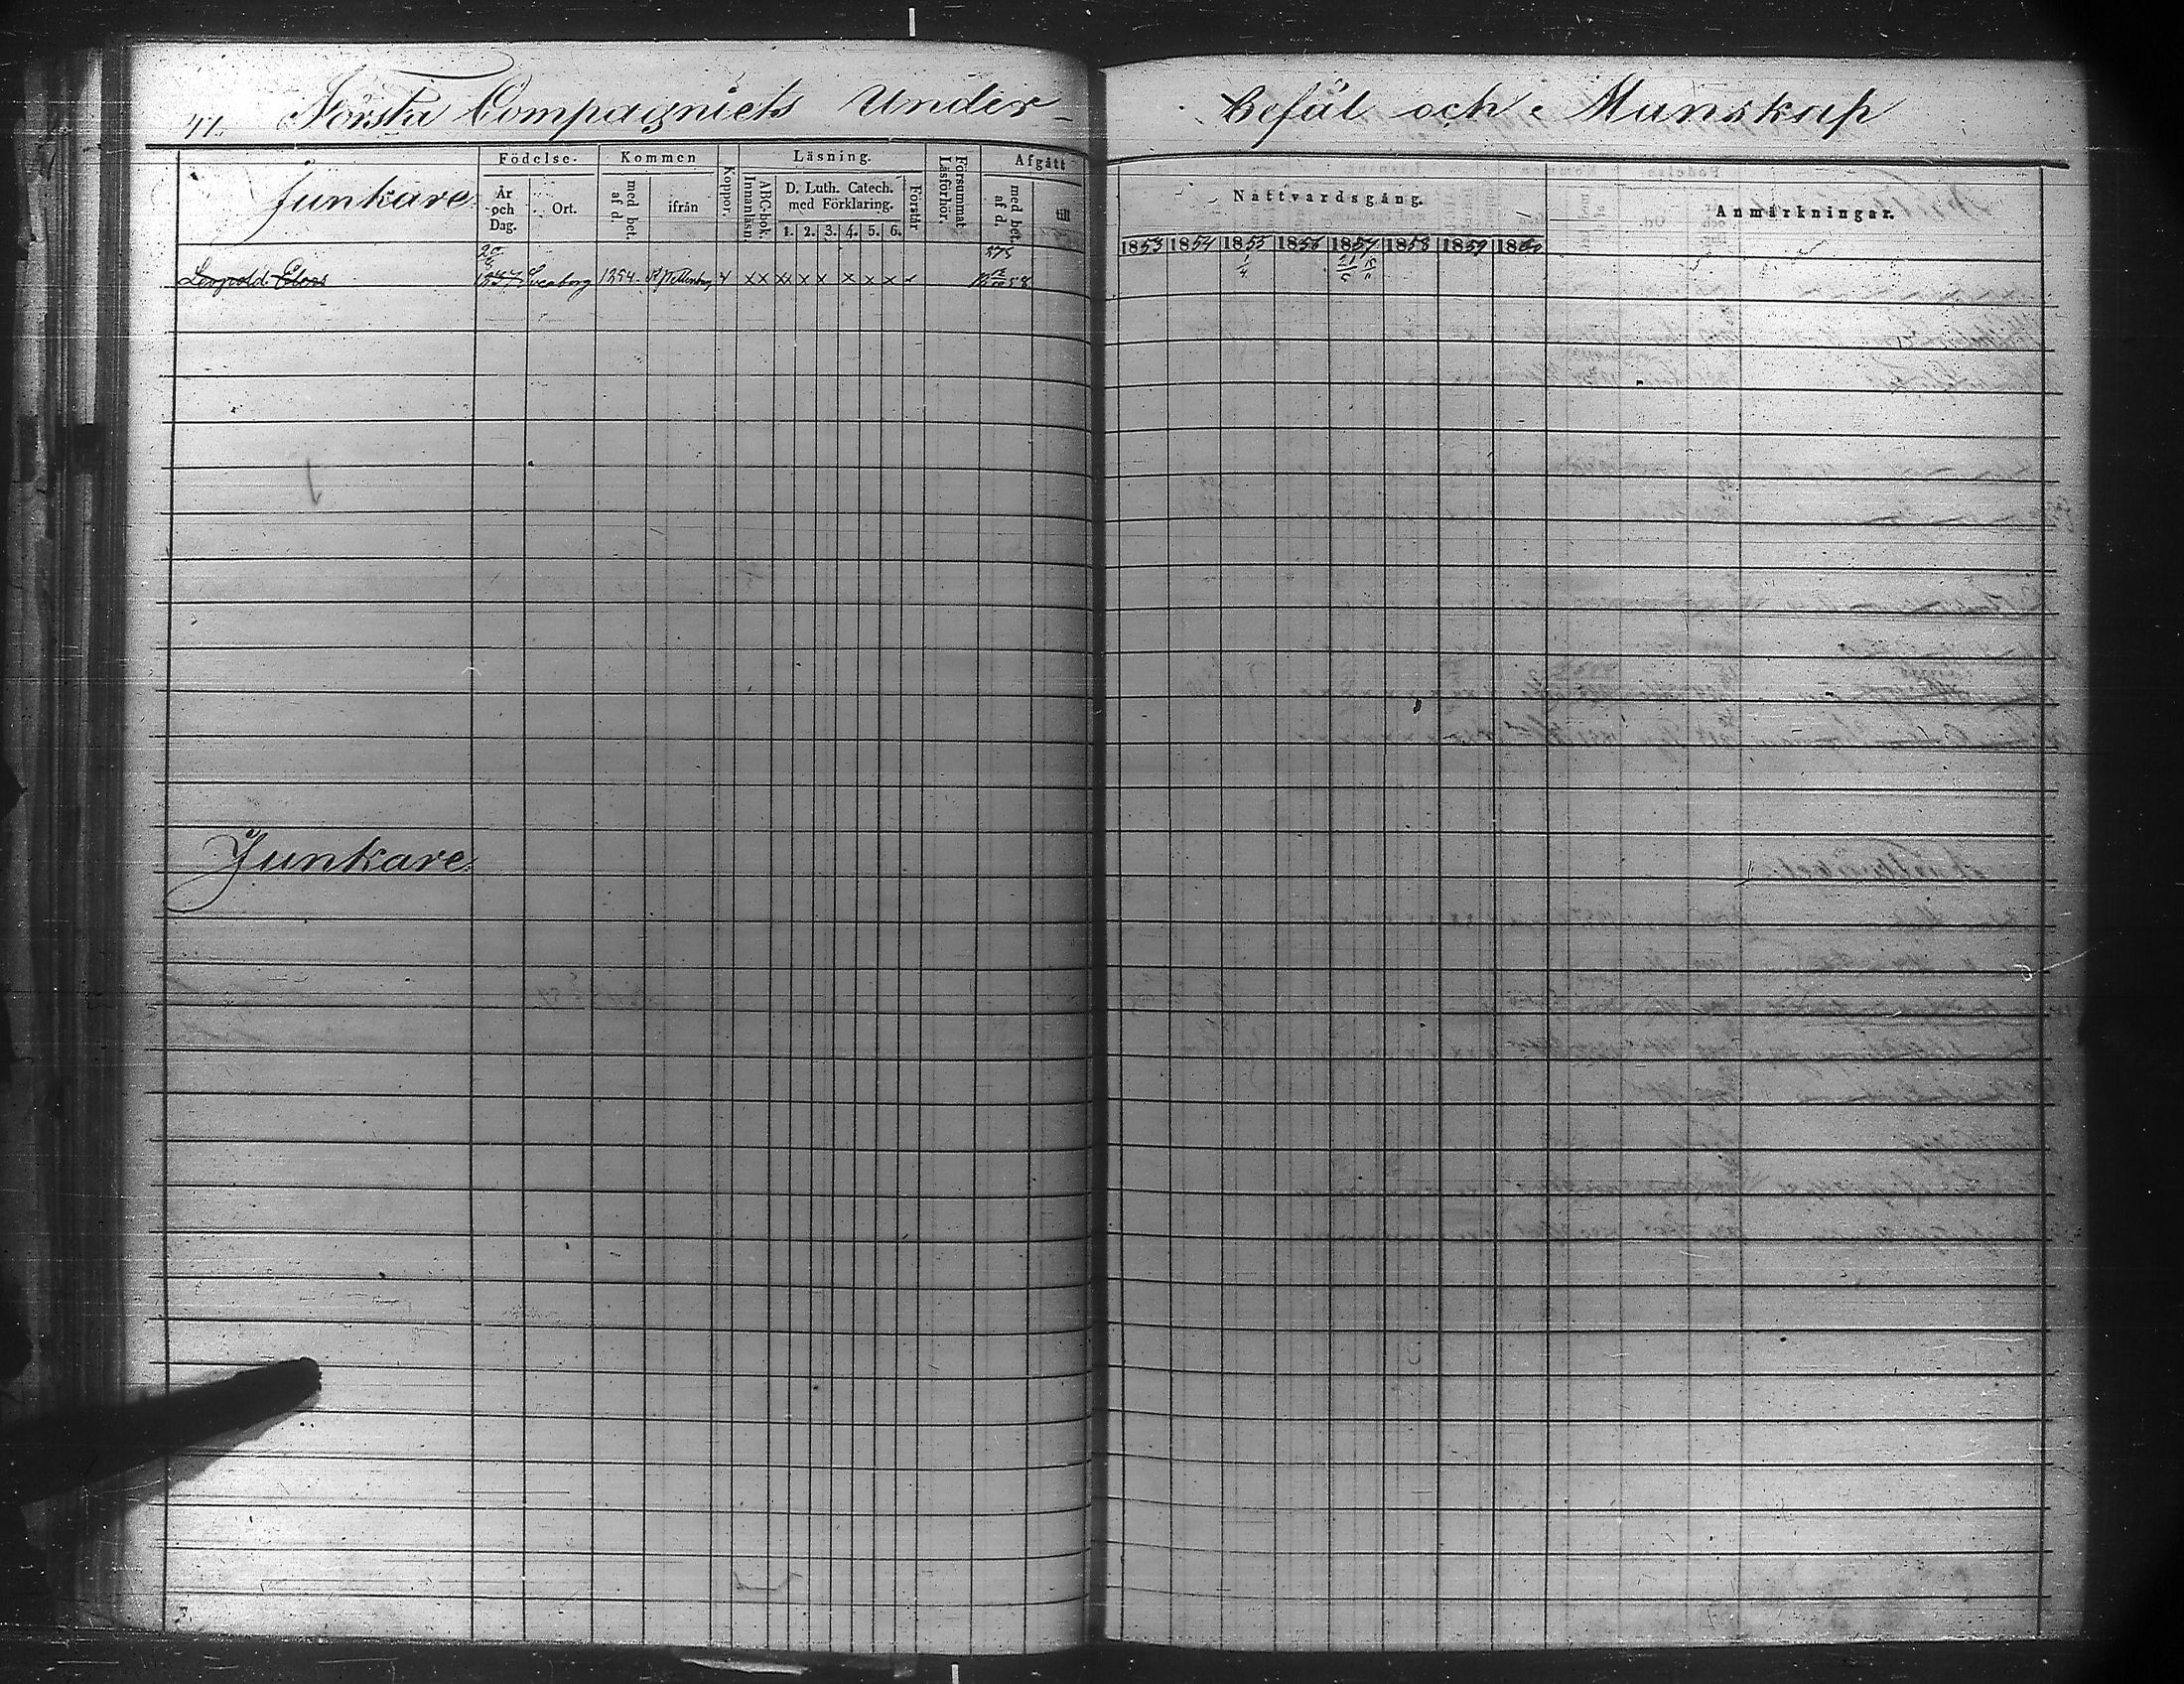 41. Första Compagniets Under-
Befäl och Manskap
Junkare.
Födelse.
År och Dag.
Ort.
Kommen
med bet. af d.
ifrån
Koppor.
Läsning.
ABC-bok. Innanläsn
D. Luth. Catech. med Förklaring.
1. 2. 3. 4. 5. 6.
Förstår
Försummat Läsförhör.
Afgått
med bet. af d.
till
Nattvardsgång.
1853 1854 1855 1856 1857 1858 1859 1860
Anmärkningar.
Leopold 1837 Sveaborg 1854 x x x x x x x x x 275 58
1/4 21/5
Junkare.